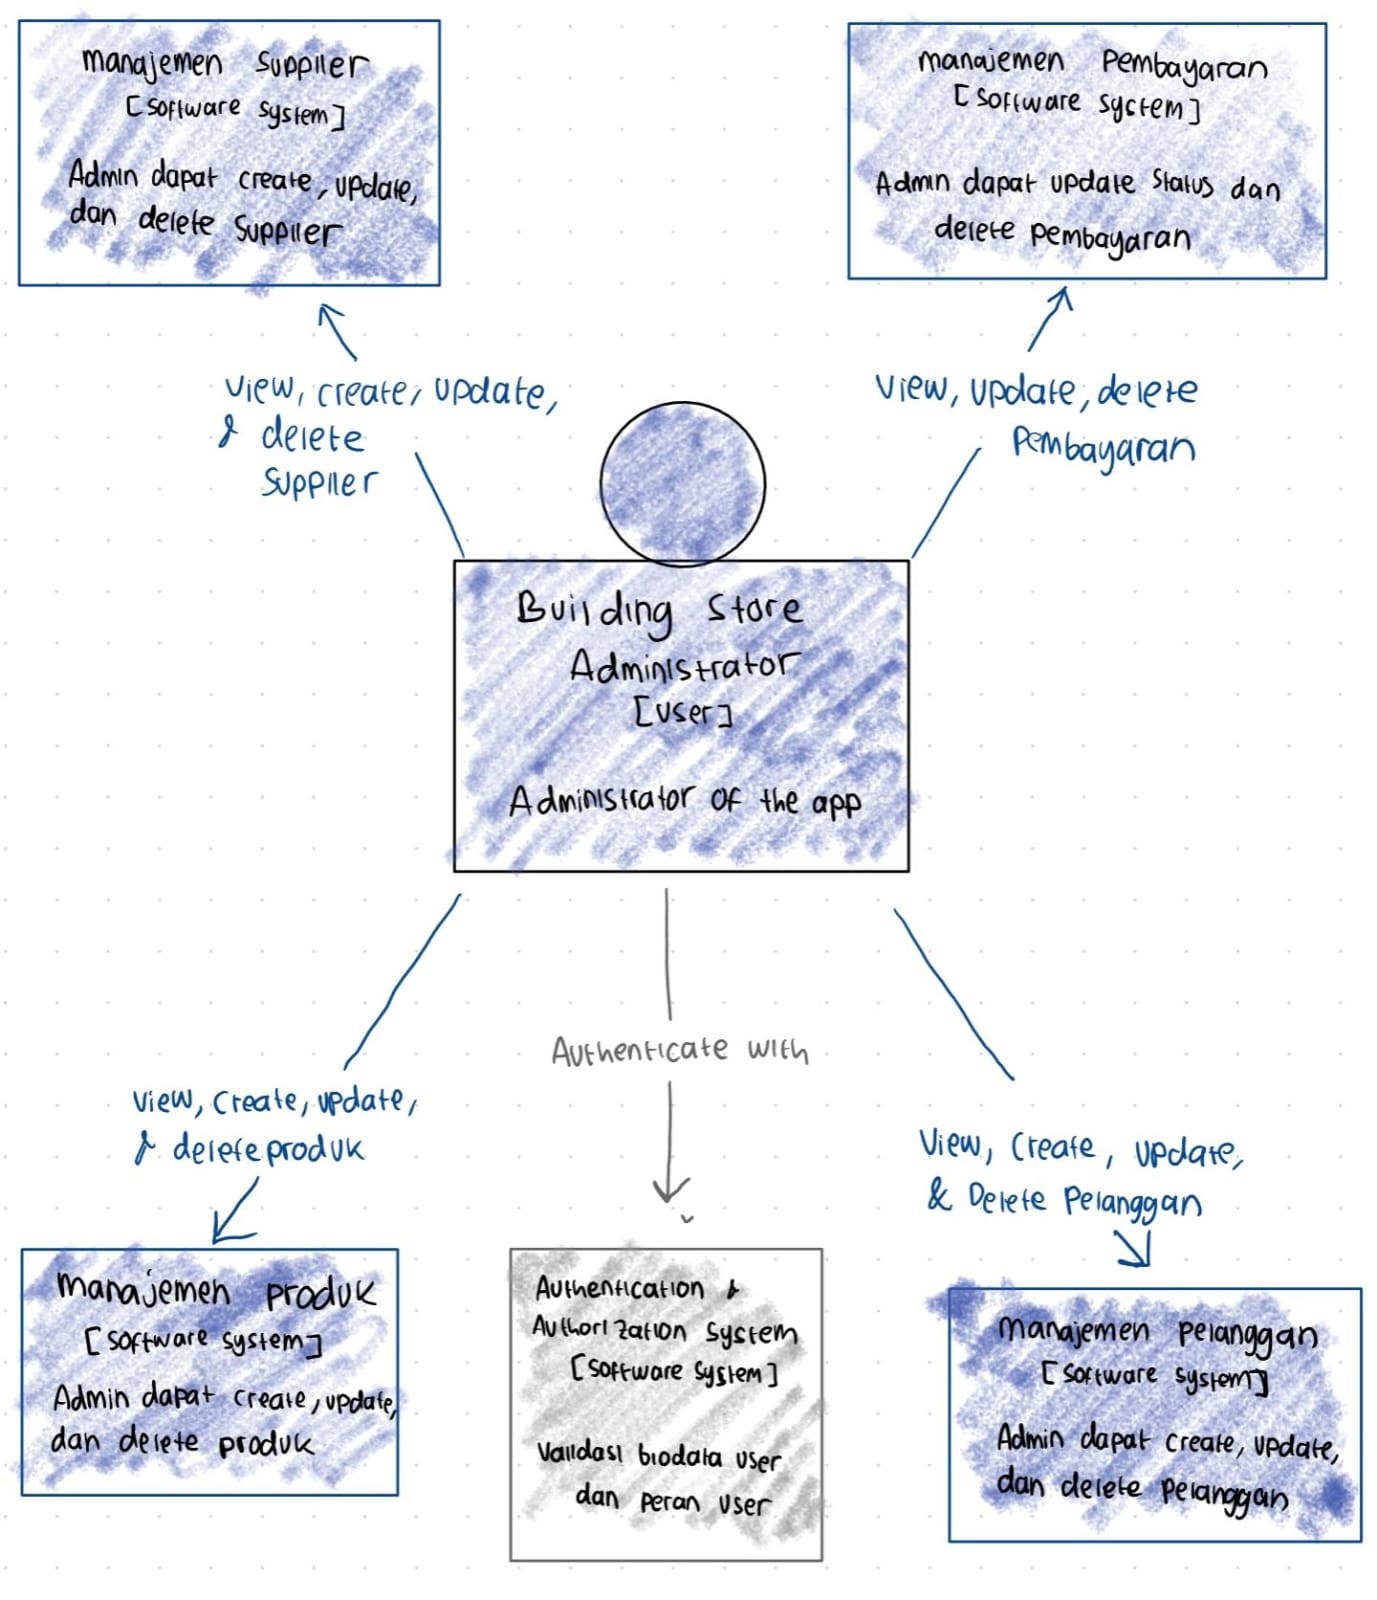 Manajemen Supplier
[Software System]
Admin dapat create, update,
dan delete Supplier
Manajemen Pembayaran
[Software System]
Admin dapat update Status dan
delete pembayaran
View, create, update,
& delete
Supplier
View, update, delete
Pembayaran
Building Store
Administrator
[User]
Administrator of the app
View, Create, update,
& delete produk
Authenticate with
View, Create, update,
& Delete Pelanggan
Manajemen produk
[Software system]
Admin dapat create, update,
dan delete produk
Authentication &
Authorization System
[Software System]
Validasi biodata user
dan peran user
Manajemen Pelanggan
[Software System]
Admin dapat create, update,
dan delete pelanggan